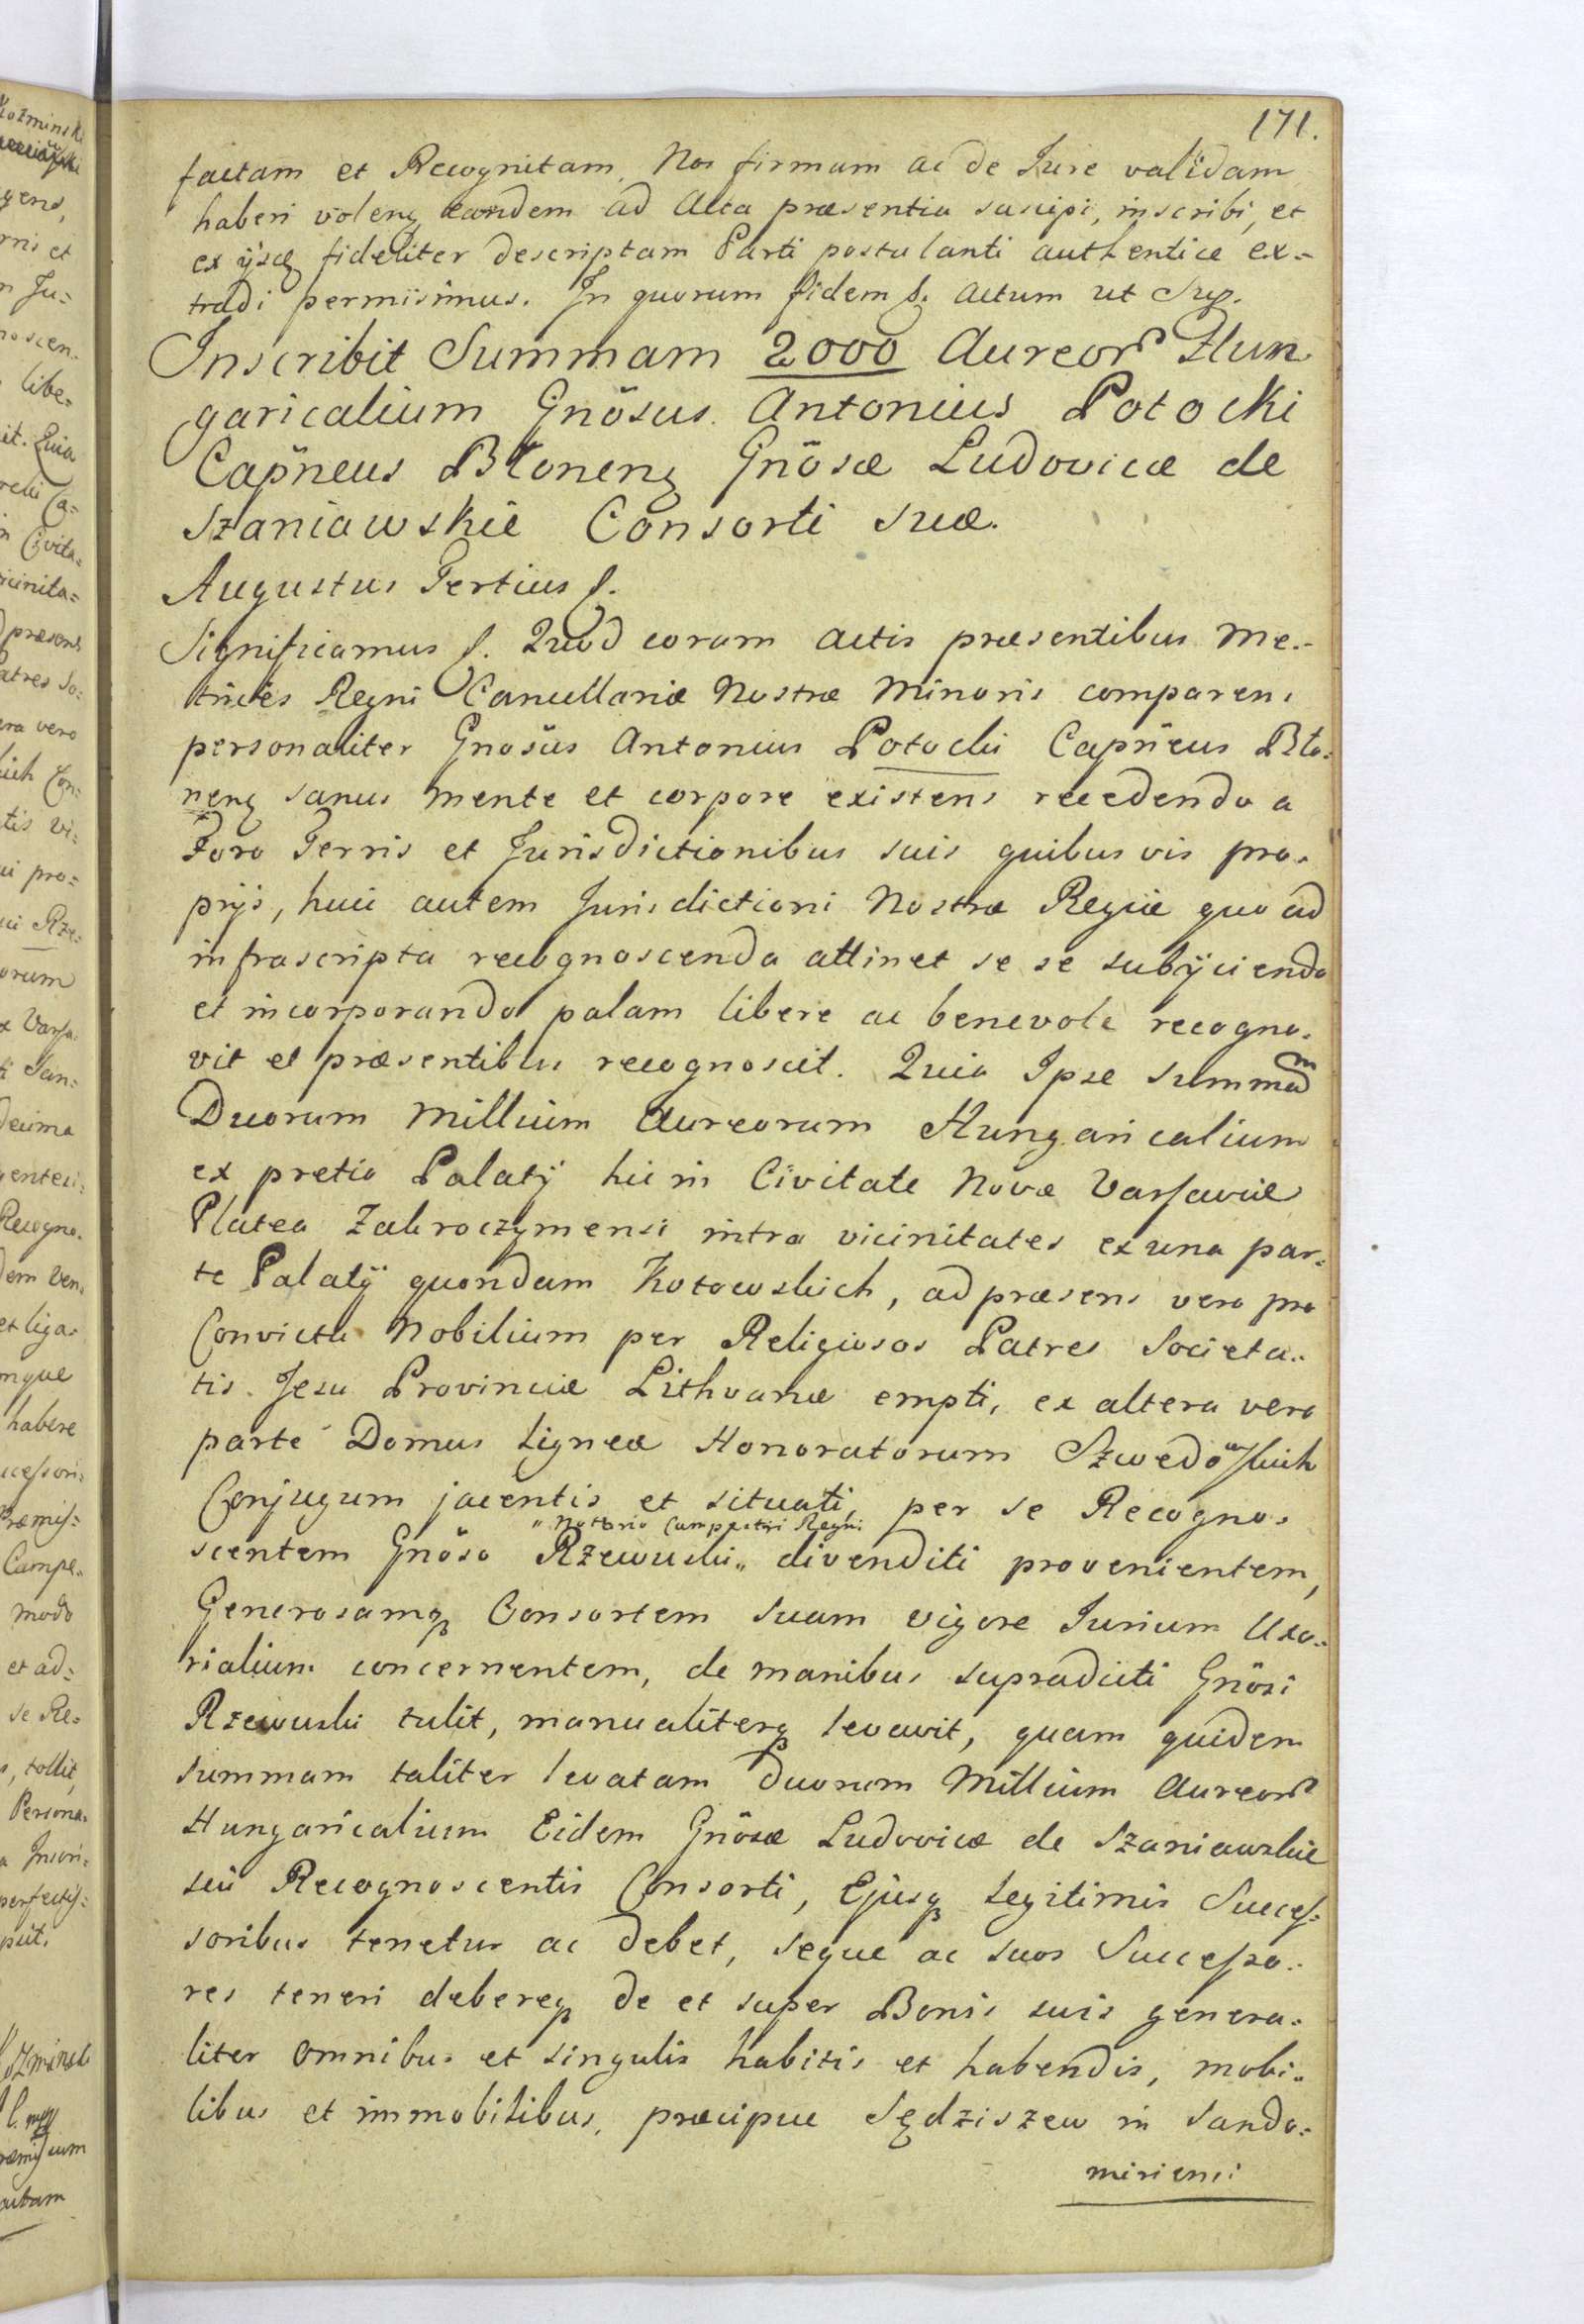 171.
factam et Recognitam, Nos firmam ac de Jure validam
haberi volenꝫ eandem ad Acta præsentia suscipi, inscribi, et
ex ijsqꝫ fideliter descriptam Parti postulanti authentice ex=
tradi permisimus. In quorum fidem &. Actum ut Sup.
Inscribit Summam 2000 Aureor Hun
garicalium Gnösus Antonius Potocki
Capñeus Błonenꝫ Gnösæ Ludovicæ de
Szaniawskie Consorti Suæ.
Augustus Tertius &.
Significamus &. Quod coram Actis præsentibus Me=
trices Regni Cancellariæ Nostræ Minoris comparens
personaliter Gnosüs Antonius Potocki Capñeus Bło=
nenꝫ sanus mente et corpore existens recedendo a
Foro Terris et Jurisdictionibus suis quibusvis pro=
prijs, huic autem Jurisdictioni Nostræ Regiæ quo ad
infrascripta recognoscenda attinet se se subijciendo
et incorporando palam libere ac benevole recogno=
vit et præsentibus recognoscit. Quia Ipse summam
Duorum Millium Aureorum Hungaricalium
ex pretio Palatij hic in Civitate Nova Varsaviæ
Platea Zakroczymensi intra vicinitates ex una par=
te Palatij quondam Kotowskich, ad præsens vero pro
Convictu Nobilium per Religiosos Patres Societa=
tis Jesu Provinciæ Lithvanæ empti, ex altera vero
parte Domus Ligneæ Honoratorum Szwedowskich
Conjugum jacentis et situati, per se Recogno=
" Notario Campestri Regni
scentem Gnöso Rzewuski " divenditi provenientem,
Generosamqꝫ Consortem suam vigore Jurium Uxo=
rialium concernentem, de manibus supradicti Gnösi
Rzewuski tulit, manualiterqꝫ levavit, quam quidem
summam taliter levatam duorum Millium Aureor
Hungaricalium Eidem Gnösæ Ludovicæ de Szaniawskie
sui Recognoscentis Consorti, Ejusqꝫ Legitimis Succes=
soribus tenetur ac debet, seque ac suos Successo=
res teneri debereqꝫ de et super Bonis suis genera=
liter omnibus et singulis habitis et habendis, mobi=
libus et immobilibus, præcipue Sędziszew in Sando=
miriensi